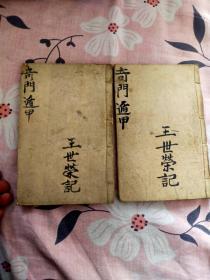 奇門遁甲
王世榮記
奇門遁甲
王世榮記